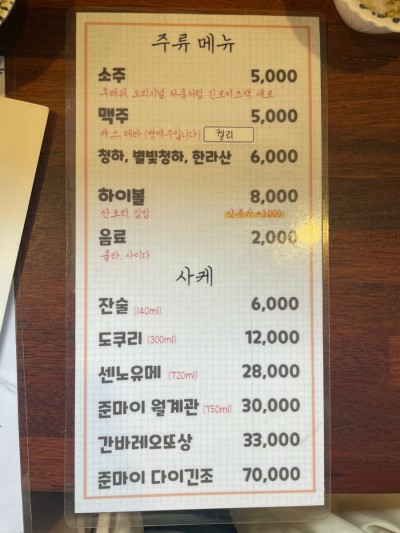 주류 메뉴
소주 5,000
후레쉬, 오리지널, 처음처럼, 진로이즈백, 새로
맥주 5,000
카스, 테라 (병맥주입니다) 켈리
청하, 별빛청하, 한라산 6,000
하이볼 8,000
산토리, 짐빔 +3000
음료 2,000
콜라, 사이다
사케
잔술 (140ml) 6,000
도쿠리 (300ml) 12,000
센노유메 (720ml) 28,000
준마이 월계관 (750ml) 30,000
간바레오또상 33,000
준마이 다이긴조 70,000